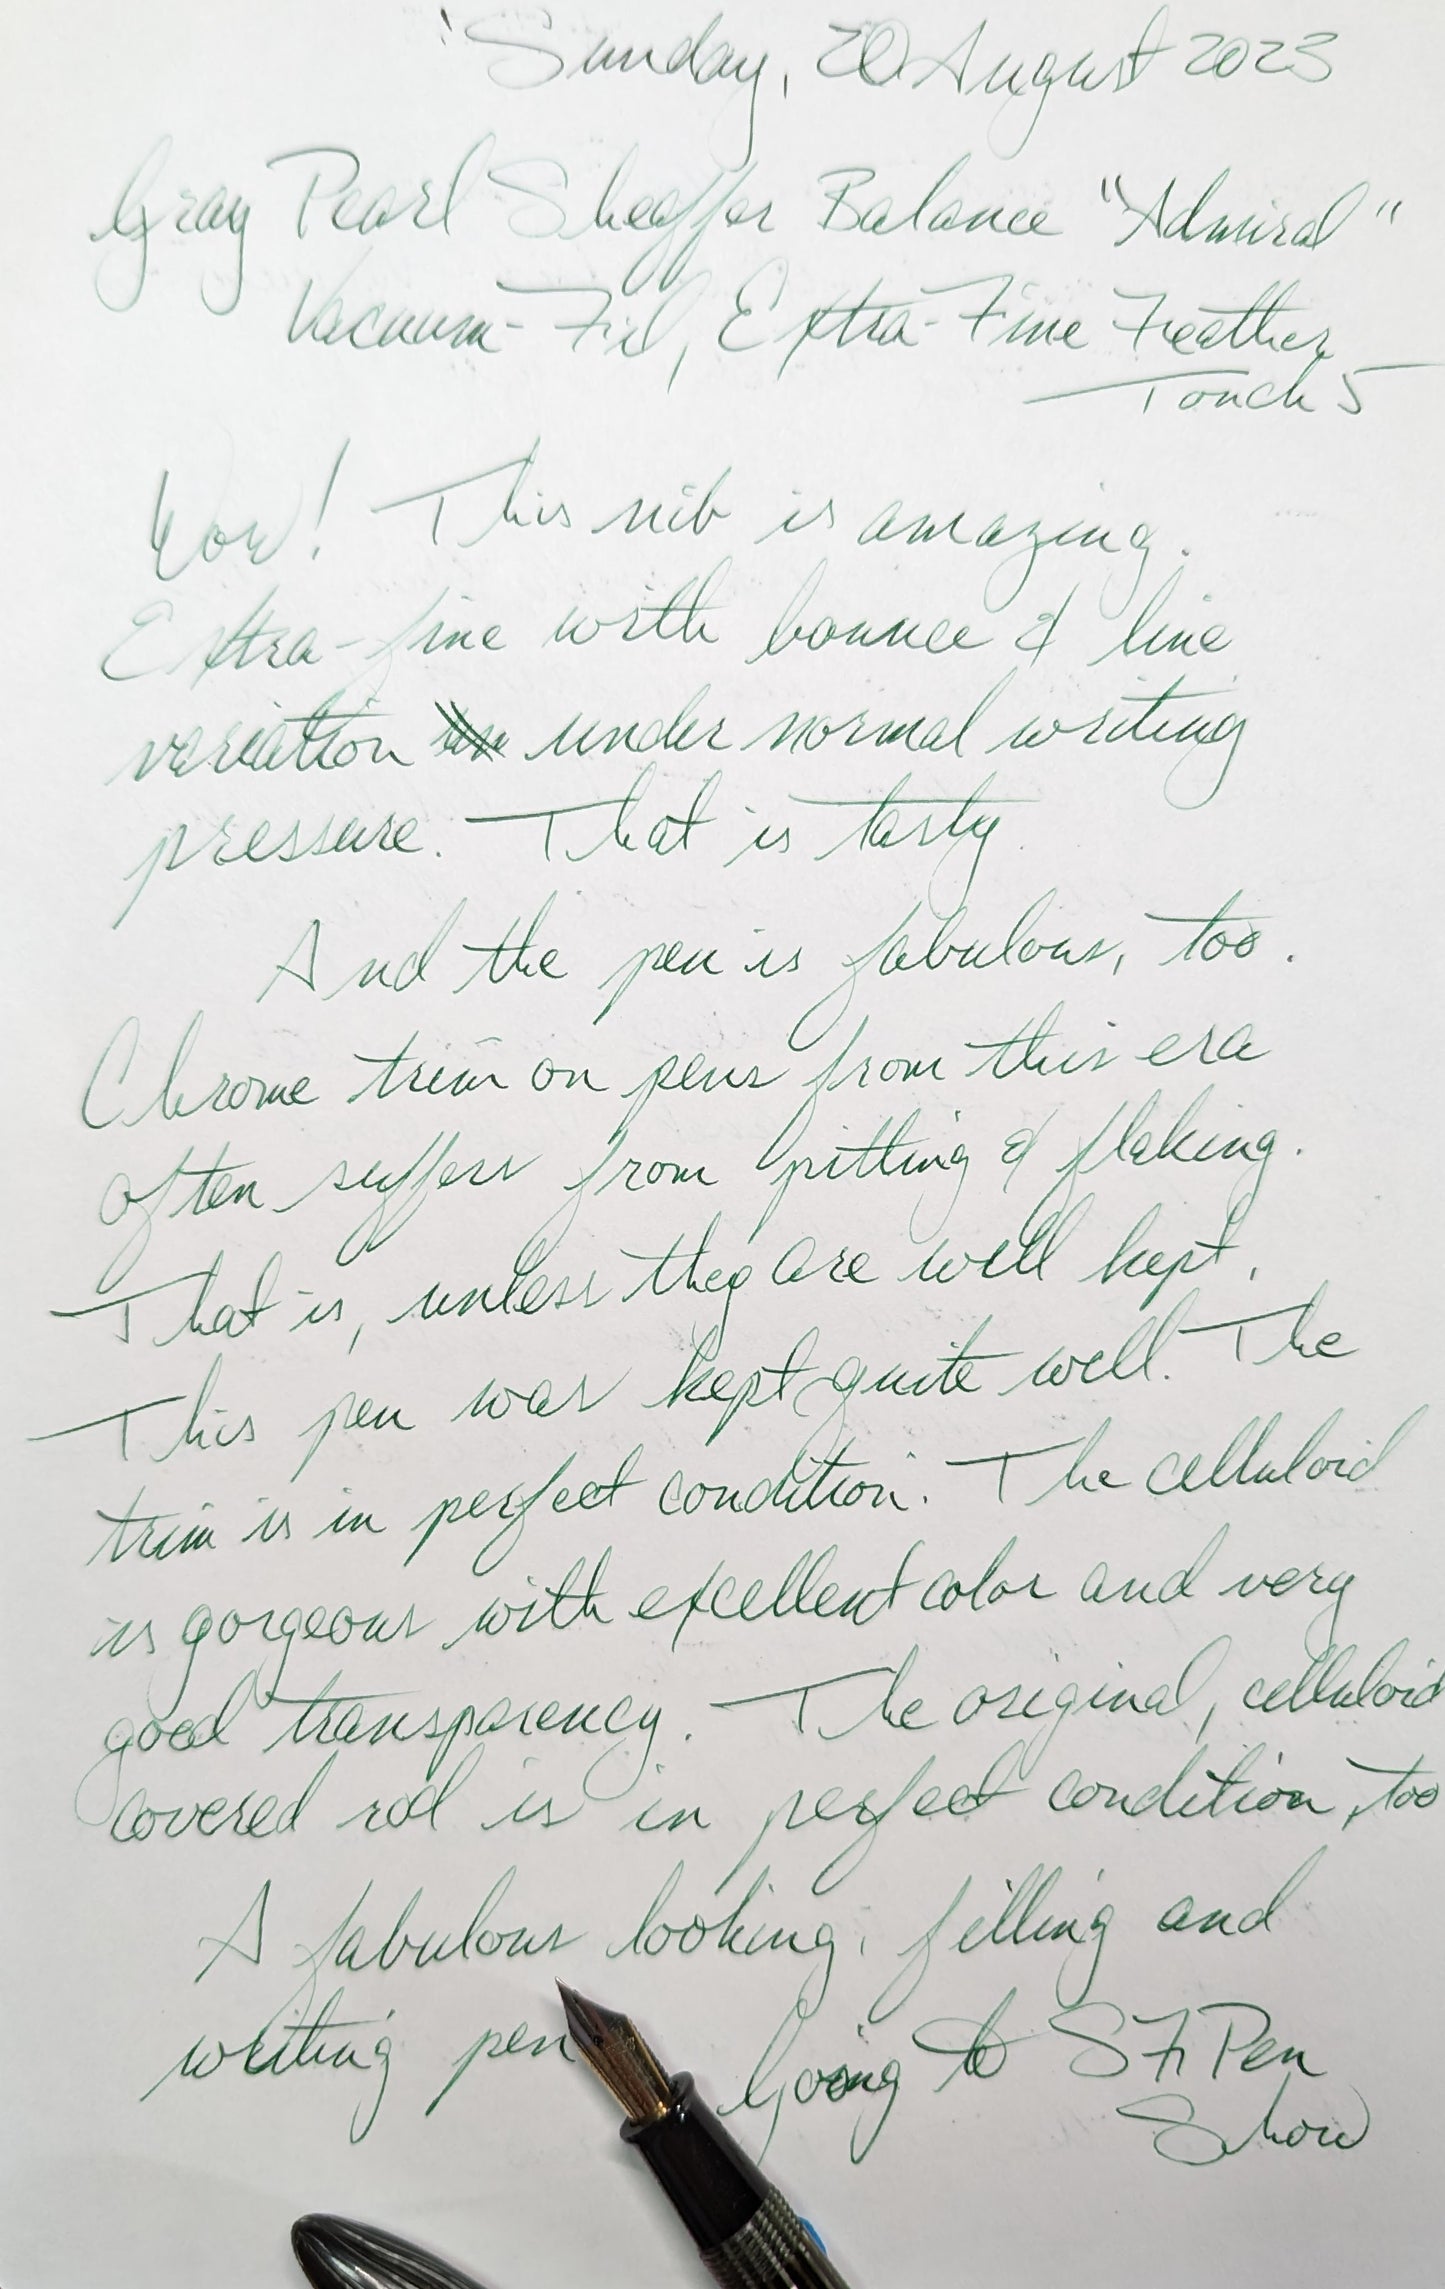 Sunday, 20 August 2023
Gray Pearl Sheaffer Balance "Admiral"
Vacuum-Fil, Extra-Fine Feather
Touch 5
Wow! This nib is amazing.
Extra-fine with bounce & line
variation under normal writing
pressure. That is tasty.
And the pen is fabulous, too.
Chrome trim on pens from this era
often suffers from pitting & flaking.
That is, unless they are well kept.
This pen was kept quite well. The
trim is in perfect condition. The celluloid
is gorgeous with excellent color and very
good transparency. The original, celluloid
covered rod is in perfect condition, too
A fabulous looking, filling and
writing pen Going to SF Pen
Show